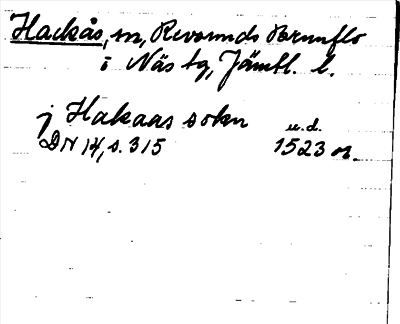 Hackås, sn, Revsunds o Brunflo
i Näs tg, Jämtl. l.
j Hakaas sokn u.d.
DN 14, s. 315 1523 or.